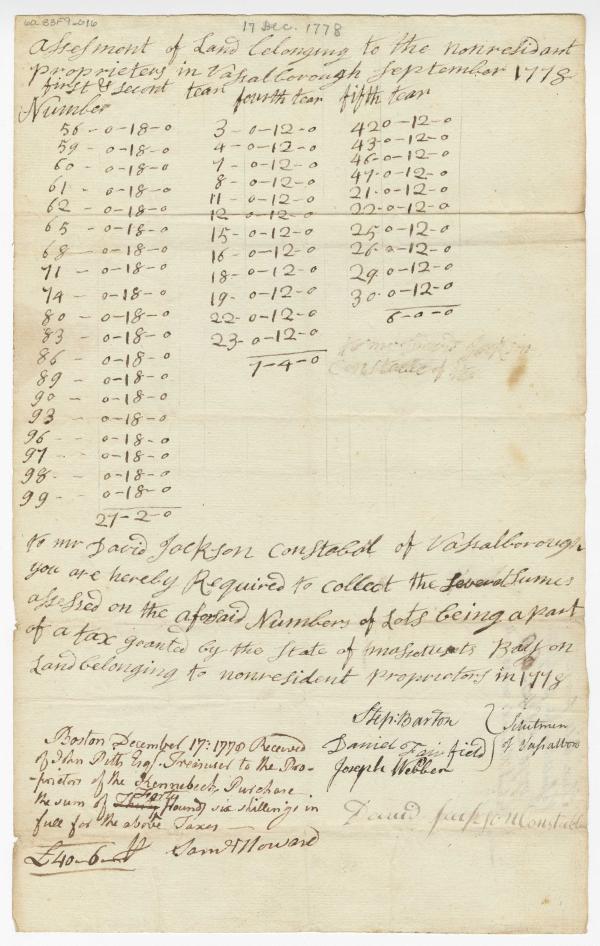 6a 83F9-016
17 Dec. 1778
Assesment of Land belonging to the nonresidant
proprieters in Vassalborough September 1778
first & secont tear fourth tear fifth tear
Number
56-0-18-0 3-0-12-0 42 0-12-0
59-0-18-0 4-0-12-0 43-0-12-0
60-0-18-0 7-0-12-0 46-0-12-0
61-0-18-0 8-0-12-0 47-0-12-0
62-0-18-0 11-0-12-0 21-0-12-0
65-0-18-0 12 0-12-0 22-0-12-0
68-0-18-0 15-0-12-0 25 0-12-0
71-0-18-0 16-0-12-0 26 0-12-0
74-0-18-0 18-0-12-0 29 0-12-0
80-0-18-0 19-0-12-0 30-0-12-0
83-0-18-0 22-0-12-0 6-0-0
86-0-18-0 23-0-12-0
89-0-18-0 7-4-0
90-0-18-0
93-0-18-0
96-0-18-0
97-0-18-0
98-0-18-0
99-0-18-0
27-2-0
to mr David Jackson
Constable of
to mr David Jackson Constabel of Vassalborough
you are hereby Required to collect the severel sumes
assessed on the aforsaid Numbers of Lots being a part
of a tax granted by the State of Bay on
Land belonging to nonresident proprietors in 1778
Step: Barton
Daniel Fairfield
Joseph Webber
Selectmen
of Vassalboro
Boston December 17: 1778 Received
of John Pitts Esq. Treasurer to the Pro-
-prietors of the Kennebeck Purchase
the sum of Thirty Forty Pounds six shillings in
full for the above Taxes —
£40-6- Saml Howard
David Jackson Constable